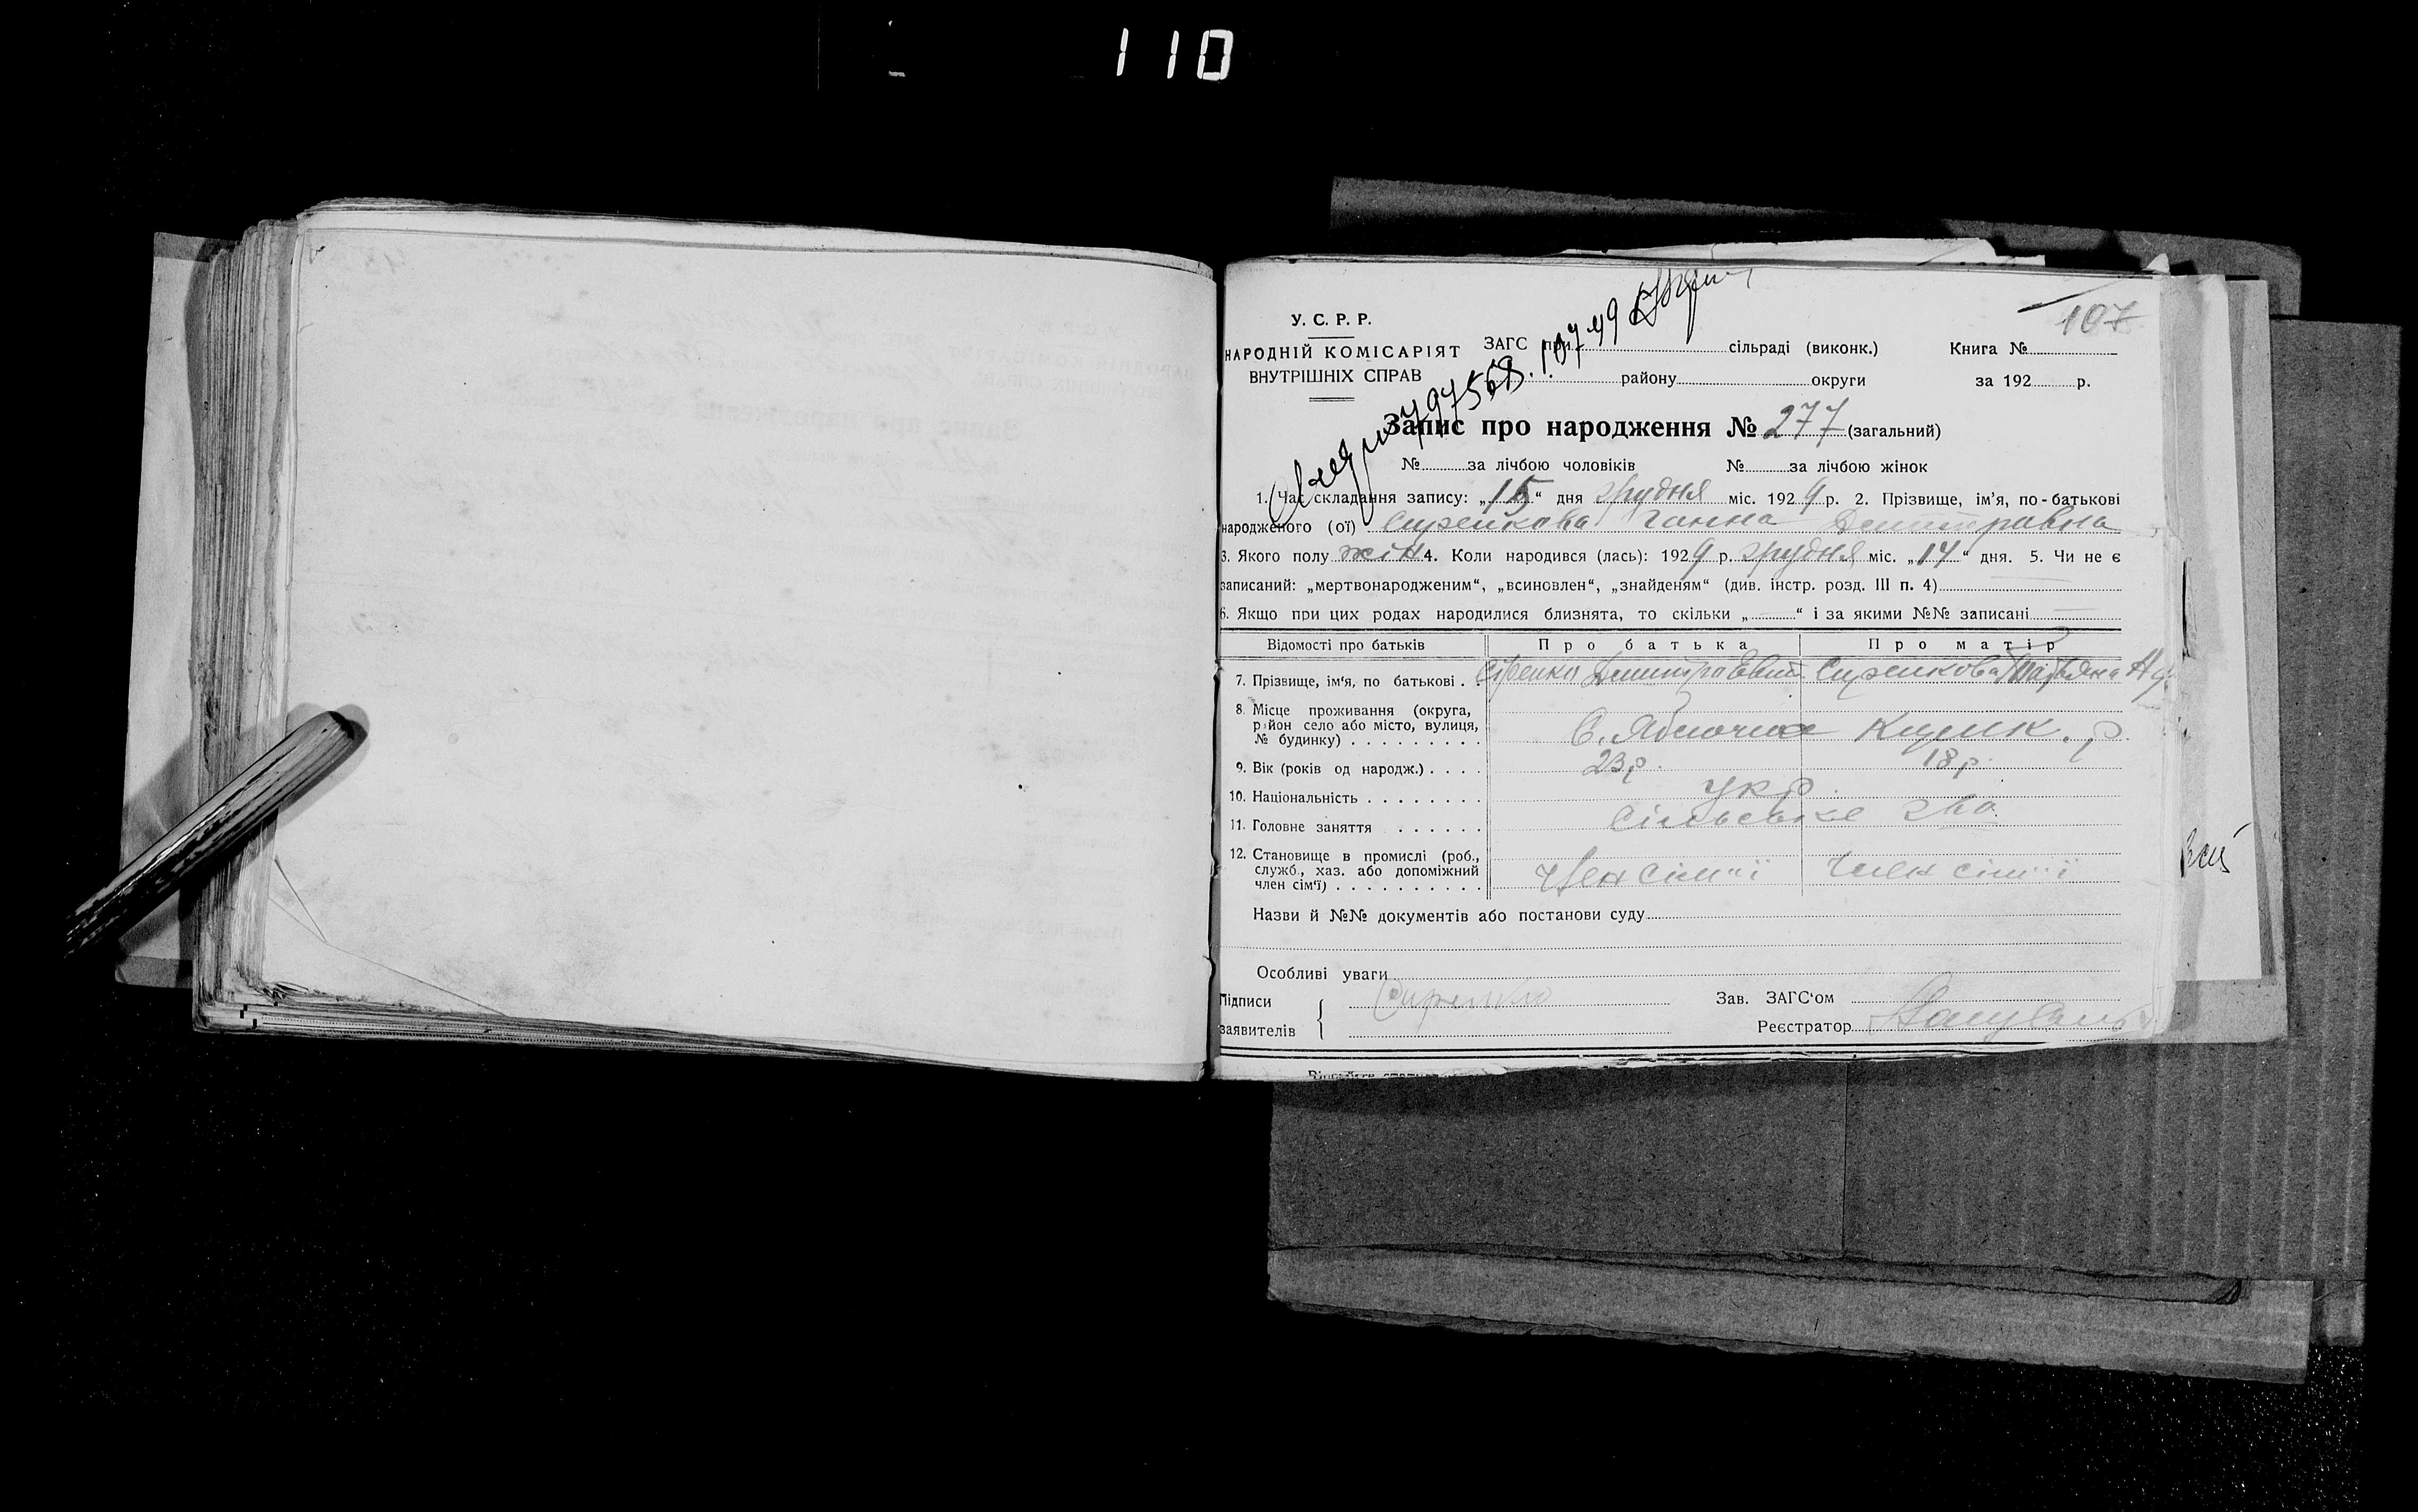 110
107
У. С. Р. Р.
НАРОДНІЙ КОМІСАРІЯТ
ВНУТРІШНІХ СПРАВ
ЗАГС при сільраді (виконк.) Книга №
району округи за 192 р.
Запис про народження № 277 (загальний)
№ за лічбою чоловіків № за лічбою жінок
1. Час складання запису: „15“ дня грудня міс. 1929 р. 2. Прізвище, ім'я, по-батькові
народженого (ої) Сиренкова Ганна Дмитровна
3. Якого полу жін 4. Коли народився (лась): 1929 р. грудня міс. „14“ дня. 5. Чи не є
записаний: „мертвонародженим“, „всиновлен“, „знайденям“ (див. інстр. розд. III п. 4)
6. Якщо при цих родах народилися близнята, то скільки „ “ і за якими №№ записані
Відомості про батьків Про батька Про матір
7. Прізвище, ім'я, по батькові . . Сіренко Дмитро Сиренкова
8. Місце проживання (округа,
район село або місто, вулиця,
№ будинку) . . . . . . . . . . С. р.
9. Вік (років од народж.) . . . . 23 р. 18 р.
10. Національність . . . . . . . . укр.
11. Головне заняття . . . . . . Сільське г-во
12. Становище в промислі (роб.,
служб., хаз. або допоміжний
член сім'ї) . . . . . . . . . . Член сім'ї Член сім'ї
Назви й №№ документів або постанови суду
Особливі уваги
Підписи Сиренко Зав. ЗАГС'ом
заявителів Реєстратор